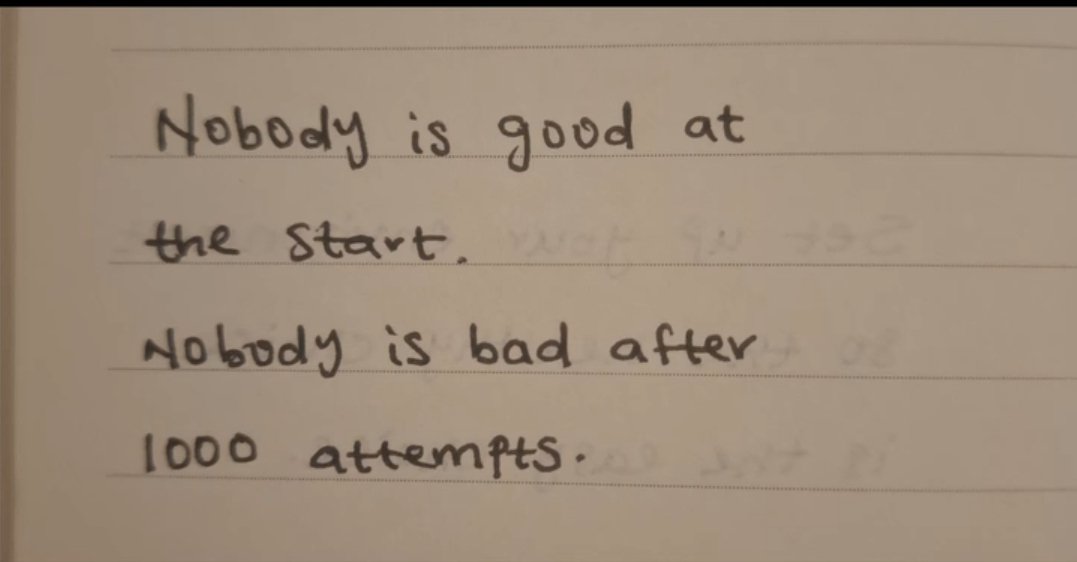 Nobody is good at
the start.
Nobody is bad after
1000 attempts.